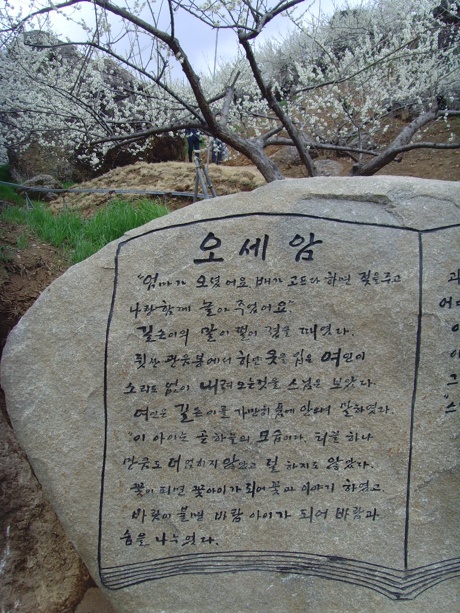 오세암
"엄마가 오셨어요. 배가 고프다 하면 젖을 주고
나랑 함께 놀아 주었어요"
길손이의 말이 떨어 졌을 때였다.
뒷산 관음봉에서 하얀 옷을 입은 여인이
소리도 없이 내려오는것을 스님은 보았다.
여인은 길손이를 가만히 품에 안으며 말하였다.
"이 아이는 곧 하늘의 모습이다. 티끌 하나
만큼도 더 얹히지 않았고 덜 하지도 않았다.
꽃이 피면 꽃아이가 되어 꽃과 이야기 하였고.
바람이 불면 바람 아이가 되어 바람과
숨을 나누었다.